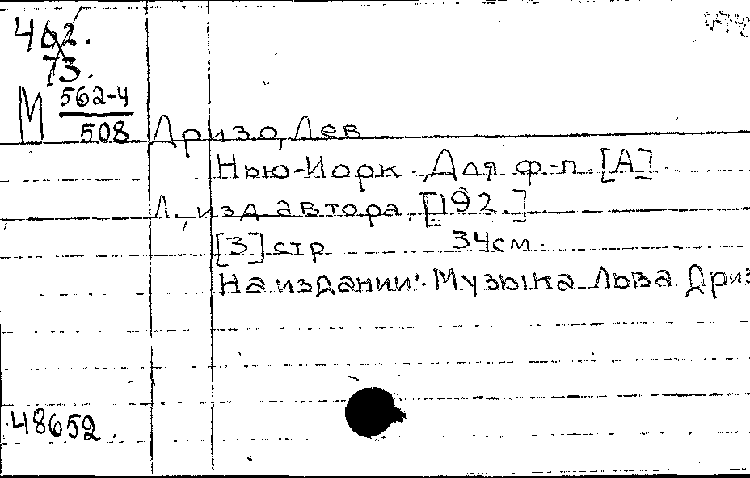 462.
73.
М 562-4
508
Дризо, Лев
Нью-Йорк. Для ф.-п. [А]
Л., изд. автора, [192.]
[3] стр. 34 см.
На издании: Музыка Льва Дриз
48652.